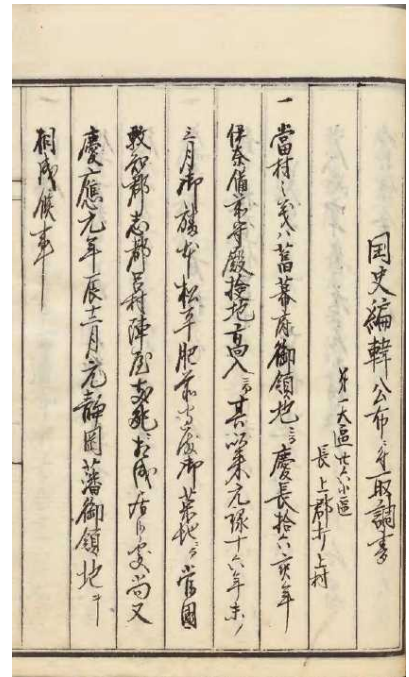 国史編輯公布ニ付取調書
第一大區廿六小區
長上郡　上村
一　當村之義ハ舊幕府御領地ニ而慶長拾六亥年
伊奈備前守殿検地高入ニ而其以来元禄十六年未ノ
三月御旗本松平肥前守殿御菜地ニ而當国
敷知郡志都呂村陣屋支配ニ相成居候処尚又
慶應元年辰十二月元静岡藩御領地ト
相成候事